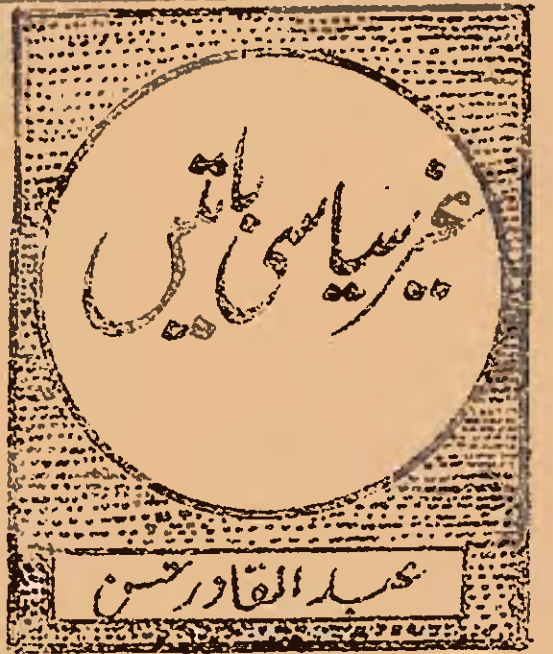 غیر سیاسی باتیں
عبدالقادر حسن